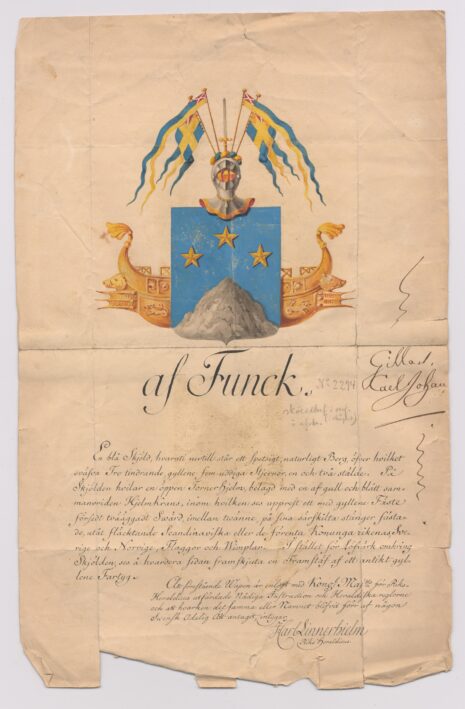 af Funck.
No 2294
Gillas.
Carl Johan
En blå Sköld, hvaruti nertill står ett spetsigt, naturligt Berg, öfver hvilket
sväfva Tre tindrande, gyllene, fem uddiga Stjernor, en och två stälde. På
Skölden hvilar en öppen Tornerhjelm, belagd med en af gull och blått sam-
manvriden Hjelmkrans, inom hvilken ses uppresst ett med gyllene Fäste
försedt tvåäggadt Swärd, emellan tvanne på sina särskilta stänger fästa-
de, utåt fläcktande Scandinaviska eller de förenta Konunga rikenas, Sve-
rige och Norrige, Flaggor och Wimplar. I stället för Löfvärk omkring
Skölden, ses å hvardera sidan framskjuta en Framstäf af ett antikt gyl-
lene Fartyg.
At förestående Wapen är enligt med Kongl Maj:ts för Riks-
Heraldicus utfärdade Nådiga Instruction och Heraldiska reglorne
och att hvarken det samma eller Namnet blifvit förr af någon
Svensk Adelig Ätt antagit, intygar
Karl Linnerhielm
Riks Heraldicus.